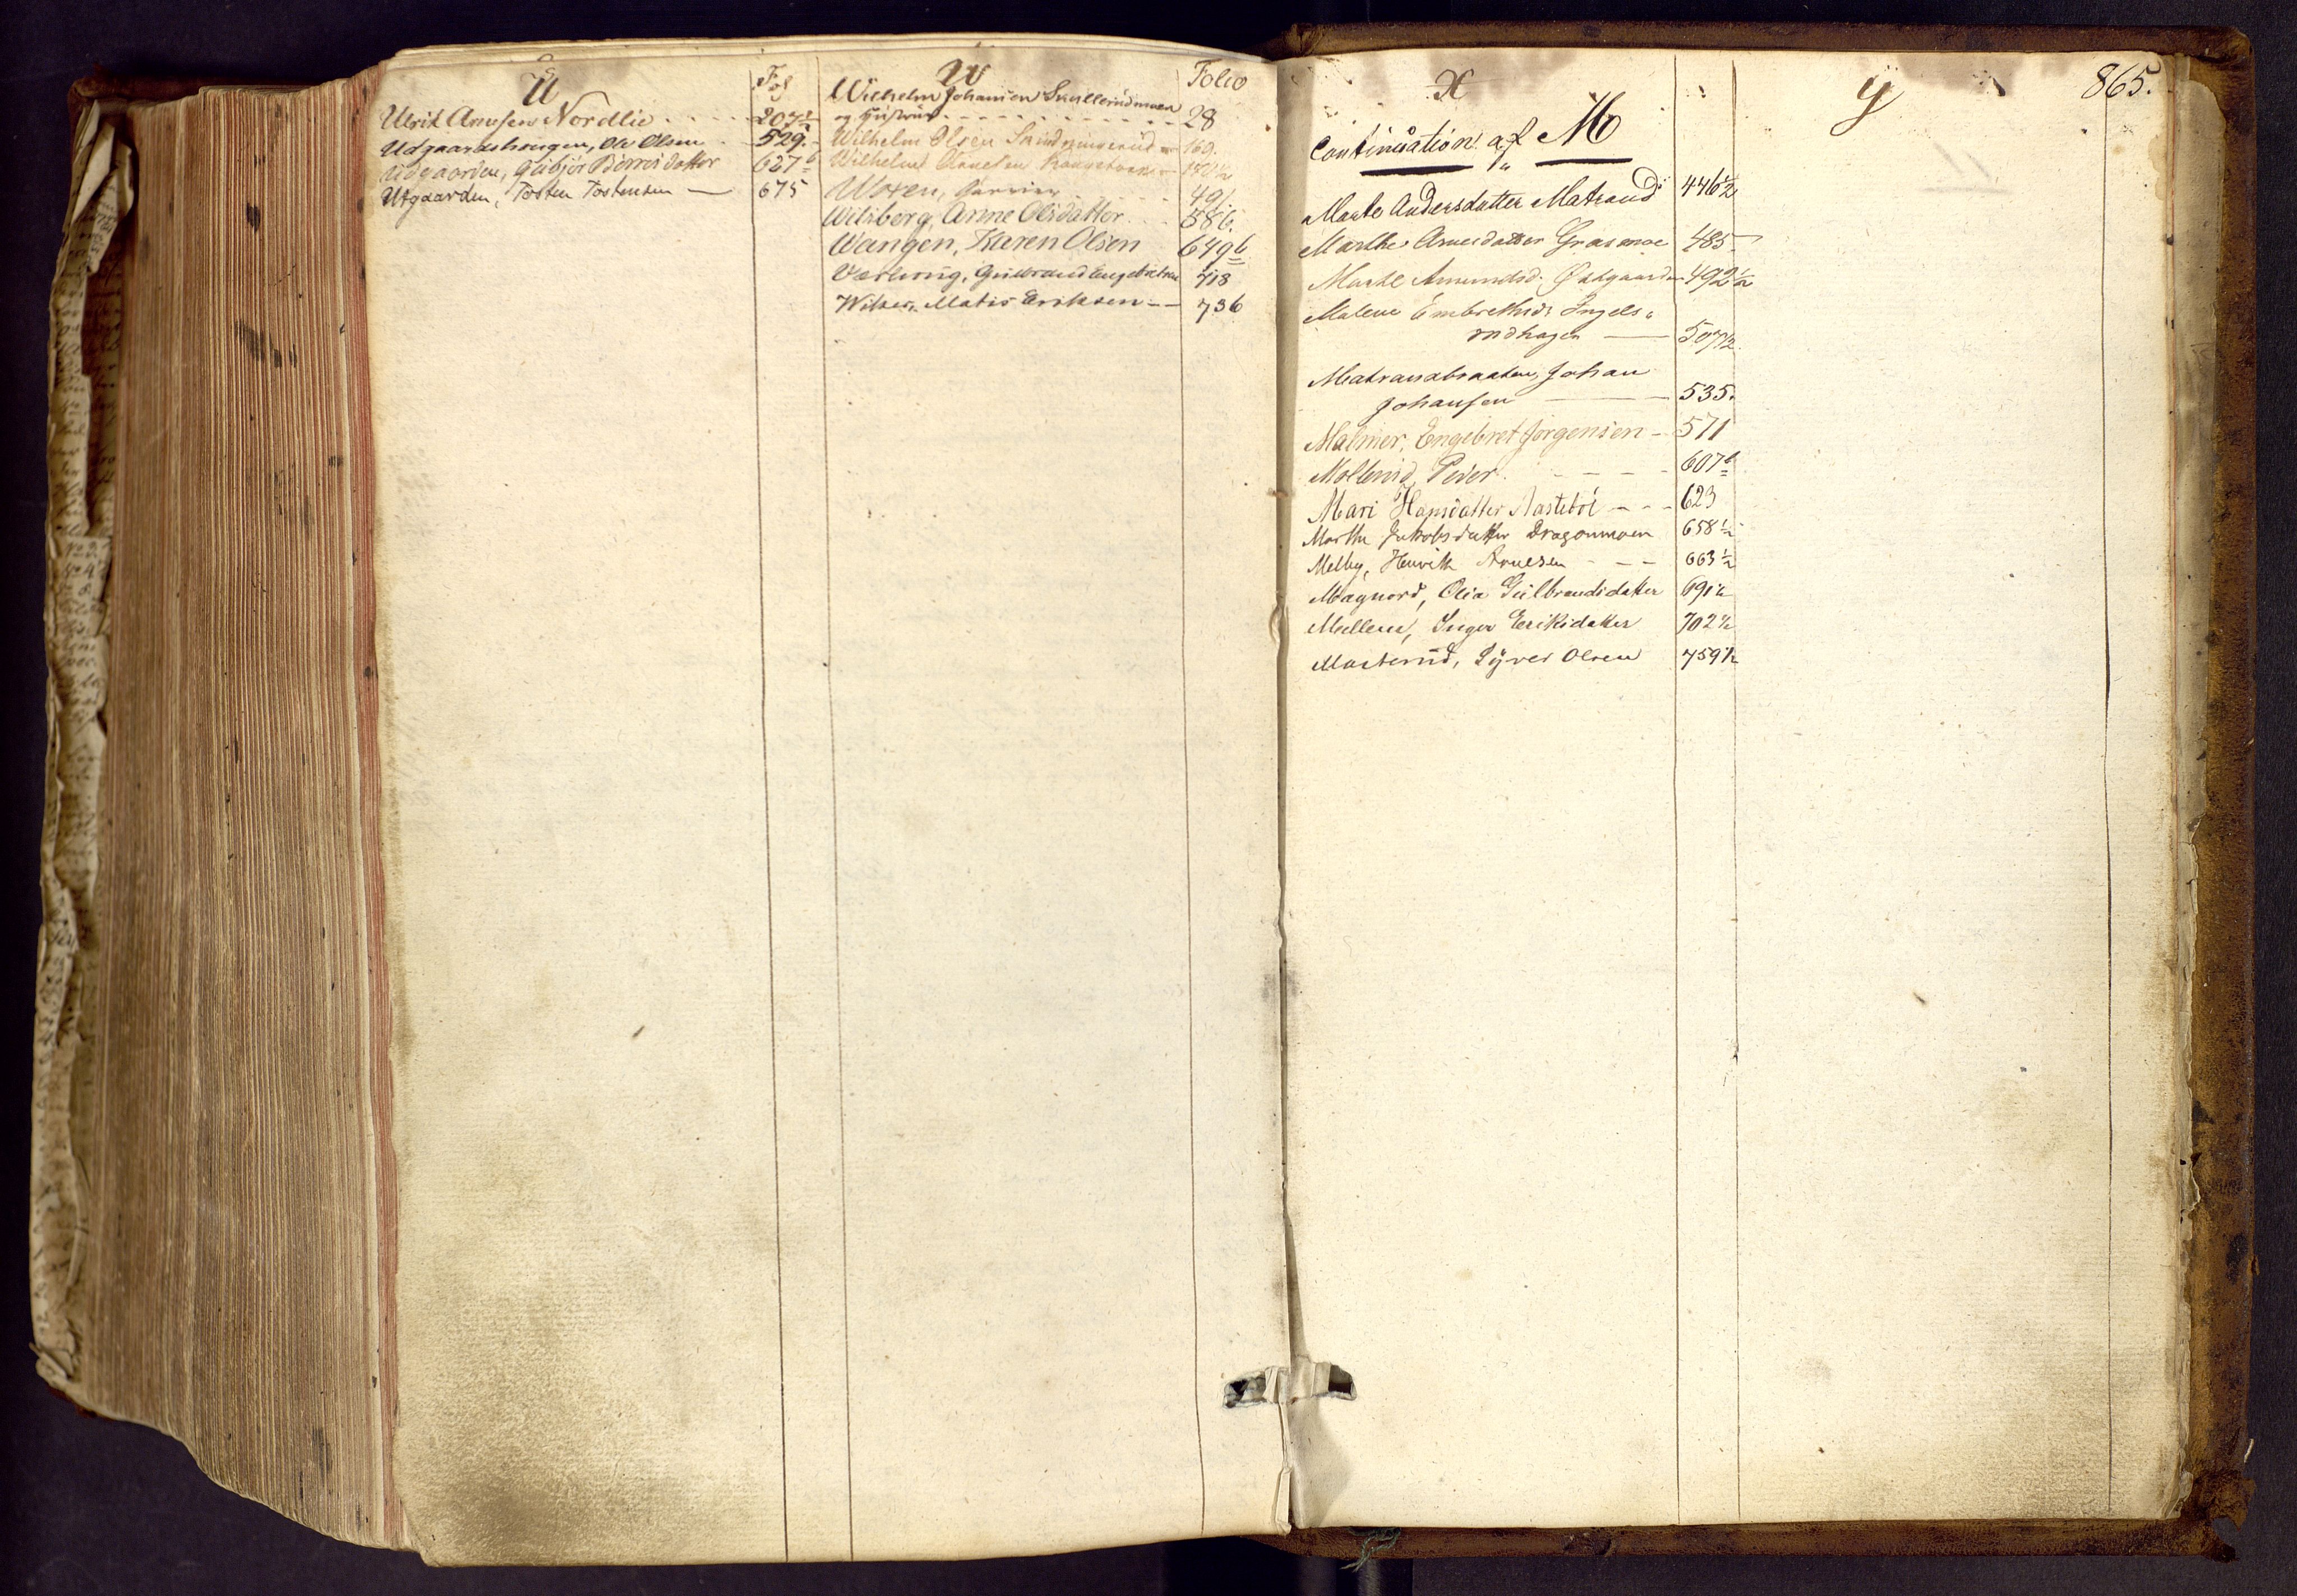 U
Fol
Ulrik Arnesen Nordlie 207½
Udgaardshougen, Ole Olsen 529.
Udgaarden, Gubjør datter 627b
Utgaarden, Tosten Tostensen — 675
W
Folio
Wilhelm Johansen Skullerudmoen
og Hustrue 28
Wilhelm Olsen 169.
Wilhelm
Woxen, 491.
Wilsberg, Anne Olsdatter 586.
Wangen, Karen Olsen 649b
Gulbrand Engebretsen 718
Matis Eriksen — 736
X
Continuation af M
Marte Andersdatter Matrand 446½
Marthe Arnesdatter Grasmoe 485
Marte Amundsd. Østgaarden 492½
Malene Embrethsd: Ingels=
rudhagen — 507½
Matrandbraaten, Johan
Johansen — 535.
Malmer, Engebret Jørgensen - 571
Mollerud, Peder 607b
Mari Hansdatter Aastebøl - - - 623
Marthe Jakobsdatter Dragonmoen 658½
Melby, Henrik Arnesen - - - 663½
Magnord, Olia Gulbrandsdatter 691½
Mellem, Inger Eriksdatter 702½
Masterud, Syver Olsen 759½
Y
865.